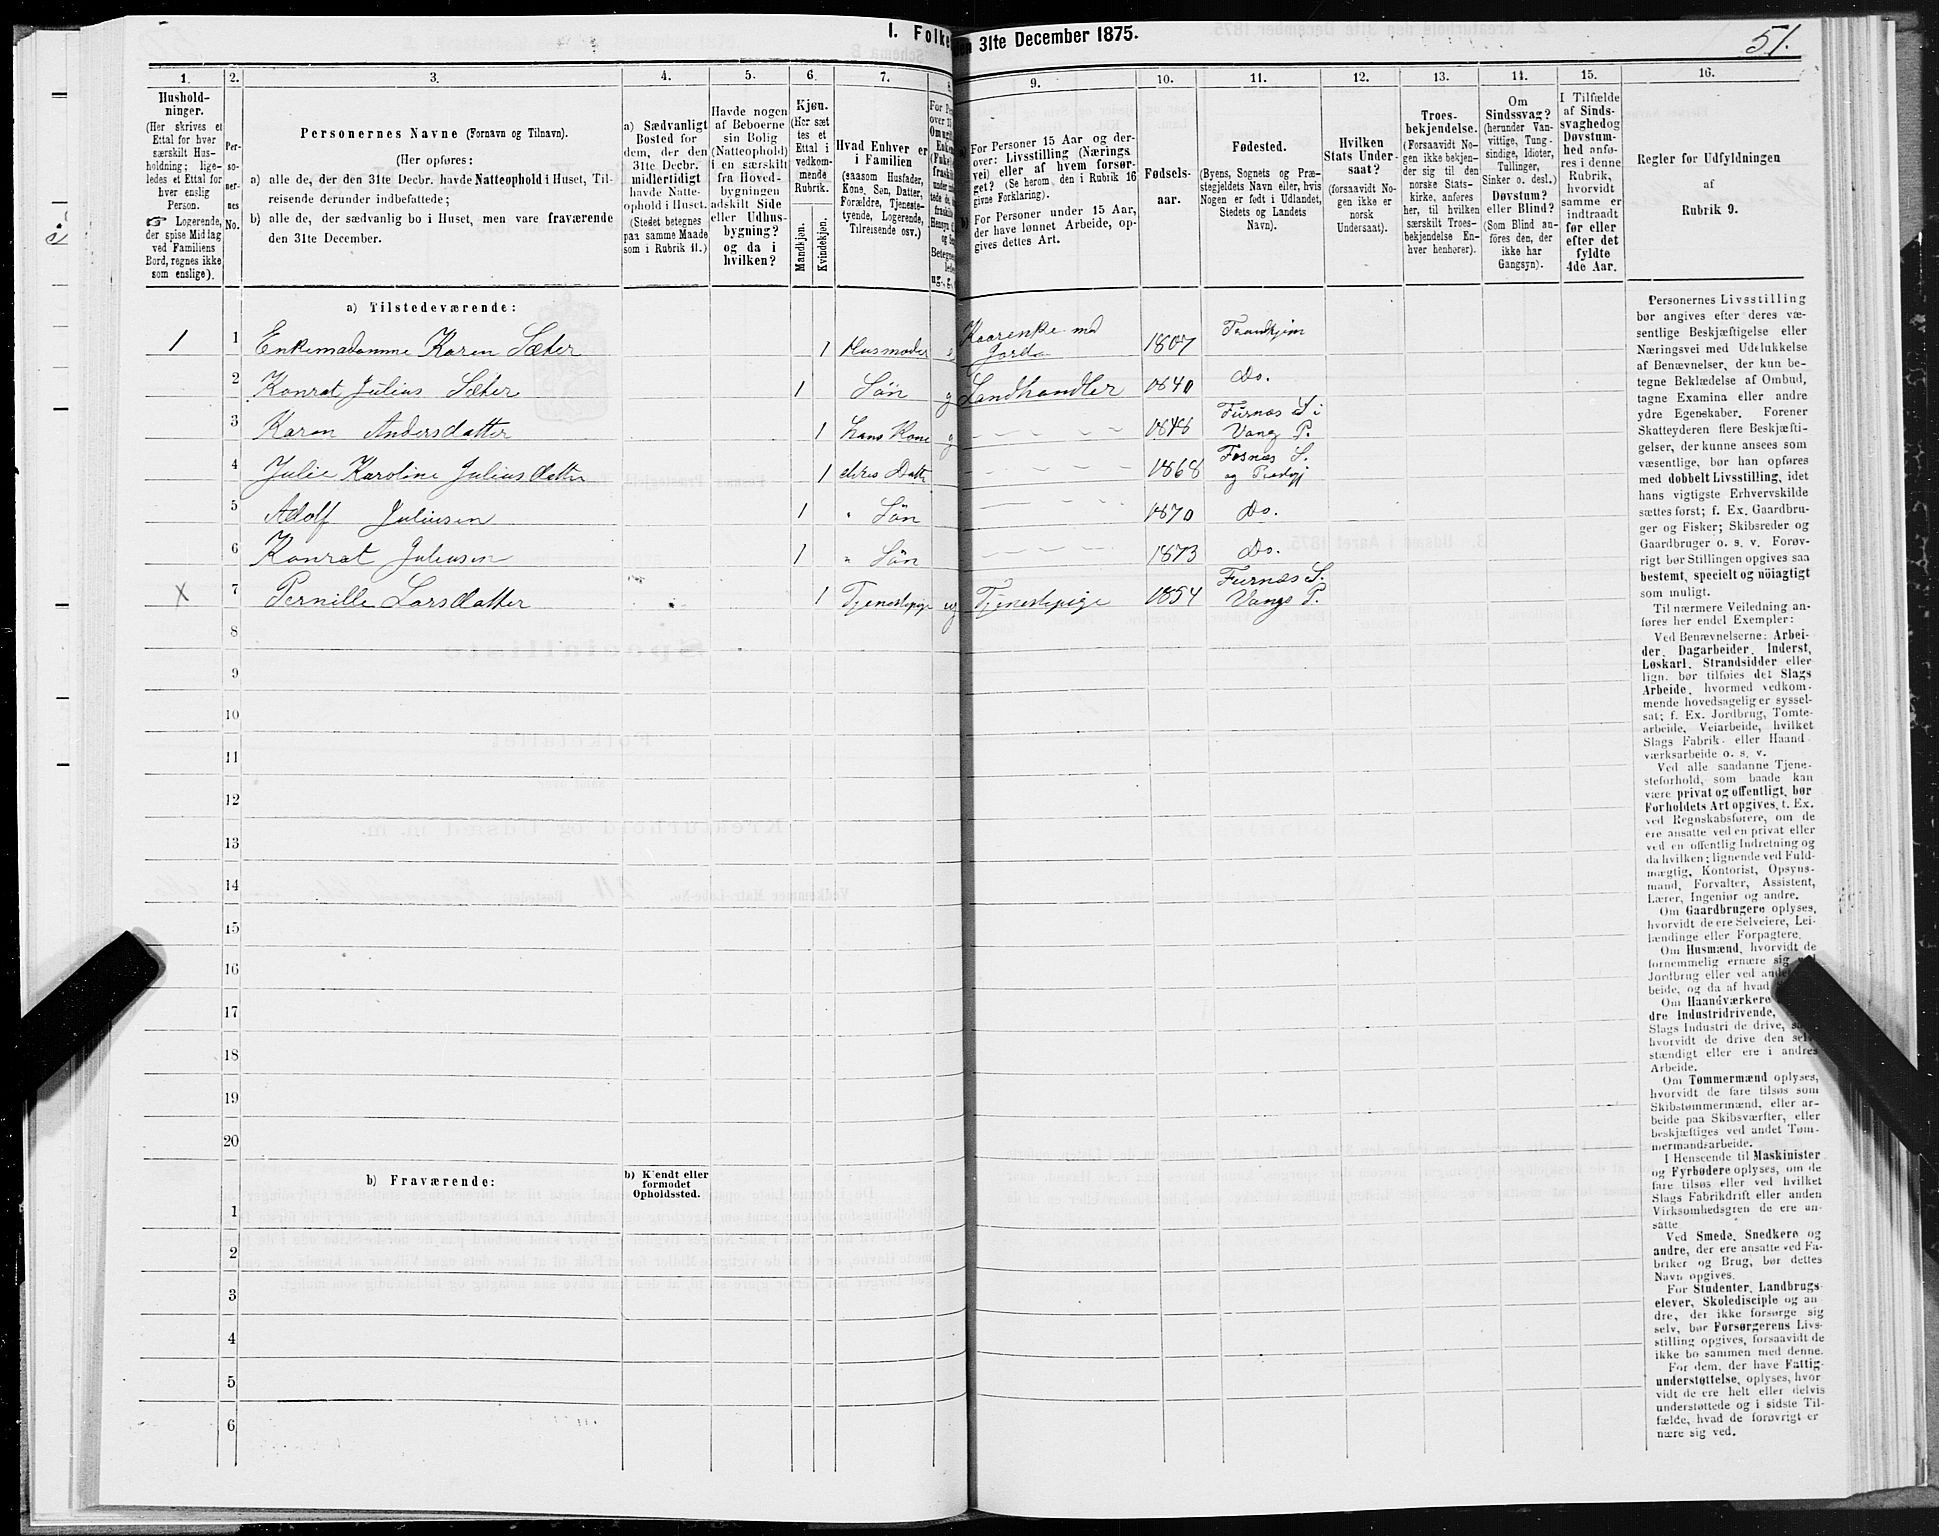 I. Folke
en 31te December 1875.
51.
1.
2.
3.
4.
5.
6.
7.
8.
9.
10.
11.
12.
13.
14.
15.
16.
Hushold-
ninger.
(Her skrives et
Ettal for hver
særskilt Hus-
holdning; lige-
ledes et Ettal for
hver enslig
Person.
☞ Logerende,
der spise Middag
ved Familiens
Bord, regnes ikke
som enslige).
Per-
so-
ner-
nes
No.
Personernes Navne (Fornavn og Tilnavn).
(Her opføres:
a) alle de, der den 31te Decbr. havde Natteophold i Huset, Til-
reisende derunder indbefattede;
b) alle de, der sædvanlig bo i Huset, men vare fraværende
den 31te December.
a) Sædvanligt
Bosted for
dem, der den
31te Decbr.
midlertidigt
havde Natte-
ophold i Huset.
(Stedet betegnes
paa samme Maade
som i Rubrik 11.)
Havde nogen
af Beboerne
sin Bolig
(Natteophold)
i en særskilt
fra Hoved-
bygningen
adskilt Side
eller Udhus-
bygning?
og da i
hvilken?
Kjøn.
(Her sæt
tes et
Ettal i
vedkom-
mende
Rubrik.
Mandkjøn.
Kvindekjøn.
Hvad Enhver er
i Familien
(saasom Husfader,
Kone, Søn, Datter,
Forældre, Tjeneste-
tyende, Logerende,
Tilreisende osv.)
a) For Personer 15 Aar og der-
over: Livsstilling (Nærings
vei) eller af hvem forsør-
get? (Se herom den i Rubrik 16
givne Forklaring).
b) For Personer under 15 Aar,
der have lønnet Arbeide, op-
gives dettes Art.
Fødsels-
aar.
Fødested.
(Byens, Sognets og Præ-
stegjeldets Navn eller, hvis
Nogen er født i Udlandet,
Stedets og Landets
Navn).
Hvilken
Stats Under-
saat?
(forsaavidt No-
gen ikke er
norsk
Undersaat).
Troes-
bekjendelse.
(Forsaavidt No-
gen ikke bekjen-
der sig til den
norske Stats-
kirke, anføres
her, til hvilken
særskilt Troes-
bekjendelse En-
hver henhører).
Om
Sindssvag?
(herunder Van-
vittige, Tung-
sindige, Idioter,
Tullinger,
Sinker o. desl.)
Døvstum?
eller Blind?
(Som Blind an-
føres den, der
ikke har
Gangsyn).
I Tilfælde
af Sinds-
svaghed og
Døvstum-
hed anfø-
res i denne
Rubrik,
hvorvidt
samme er
indtraadt
før eller
efter det
fyldte
4de Aar.
Regler for Udfyldningen
af
Rubrik 9.
a) Tilstedeværende:
1 1 Enkemadamme Karen Sæter 1 Husmoder Kaarenke med Jorda 1807 Trondhjem
2 Konrat Julius Sæter 1 Søn g Landhandler 1840 Do.
3 Karen Andersdatter 1 hans Kone g 1848 Furnæs S i Vang P.
4 Julie Karoline Juliusdatter 1 deres Datt 1868 Fosnæs S. og Prestgj
5 Adolf Juliusen 1 " Søn 1870 Do.
6 Konrat Juliusen 1 " Søn 1873 Do.
X 7 Pernille Larsdatter 1 Tjenestepige ug Tjenestepige 1854 Furnæs S. Vangs P.
8
9
10
11
12
13
14
15
16
17
18
19
20
b) Fraværende:
b) Kjendt eller
formodet
Opholdssted.
1
2
3
4
5
6
Personernes Livsstilling
bør angives efter deres væ-
sentlige Beskjæftigelse eller
Næringsvei med Udelukkelse
af Benævnelser, der kun be-
tegne Beklædelse af Ombud,
tagne Examina eller andre
ydre Egenskaber. Forener
Skatteyderen flere Beskjæfti-
gelser, der kunne ansees som
væsentlige, bør han opføres
med dobbelt Livsstilling, idet
hans vigtigste Erhvervskilde
sættes først; f. Ex. Gaardbru-
ger og Fisker; Skibsreder og
Gaardbruger o. s. v. Forøv-
rigt bør Stillingen opgives saa
bestemt, specielt og nöiagtigt
som muligt.
Til nærmere Veiledning an-
føres her endel Exempler:
Ved Benævnelserne: Arbei-
der, Dagarbeider, Inderst,
Løskarl, Strandsidder eller
lign. bør tilføies det Slags
Arbeide, hvormed vedkom-
mende hovedsagelig er syssel-
sat; f. Ex. Jordbrug, Tomte-
arbeide, Veiarbeide, hvilket
Slags Fabrik- eller Haand
værksarbeide o. s. v.
Ved alle saadanne Tjene-
steforhold, som baade kan
være privat og offentligt, bør
Forholdets Art opgives, t. Ex.
ved Regnskabsførere, om de
ere ansatte ved en privat eller
ved en offentlig Indretning og
da hvilken; lignende ved Fuld-
mægtig, Kontorist, Opsyns-
mand, Forvalter, Assistent,
Lærer, Ingeniør og andre.
Om Gaardbrugere oplyses,
hvorvidt de ere Selveiere, Lei-
lændinge eller Forpagtere.
Om Husmænd, hvorvidt de
fornemmelig ernære sig
Jordbrug eller ved andet
beide, og da af hvad
Om Haandværkere
dre Industridrivende,
Slags Industri de drive,
hvorvidt de drive den selv
stændigt eller ere i andres
Arbeide.
Om Tømmermænd oplyses,
hvorvidt de fare tilsøs som
Skibstømmermænd, eller ar-
beide paa Skibsværfter, eller
beskjæftiges ved andet Tøm-
mermandsarbeide.
I Henseende til Maskinister
og Fyrbødere oplyses, om de
fare tilsøs eller ved hvilket
Slags Fabrikdrift eller anden
Virksomhedsgren de ere an-
satte.
Ved Smede, Snedkere og
andre, der ere ansatte ved Fa-
briker og Brug, bør dettes
Navn opgives.
For Studenter, Landbrugs-
elever, Skoledisciple og an-
dre, der ikke forsørge sig
selv, bør Forsørgerens Livs-
stilling opgives, forsaavidt de
ikke bo sammen med denne.
For dem, der have Fattig-
understøttelse, oplyses, hvor
vidt de ere helt eller delvis
understøttede og i sidste Til-
fælde, hvad de forøvrigt er
nære sig ved.